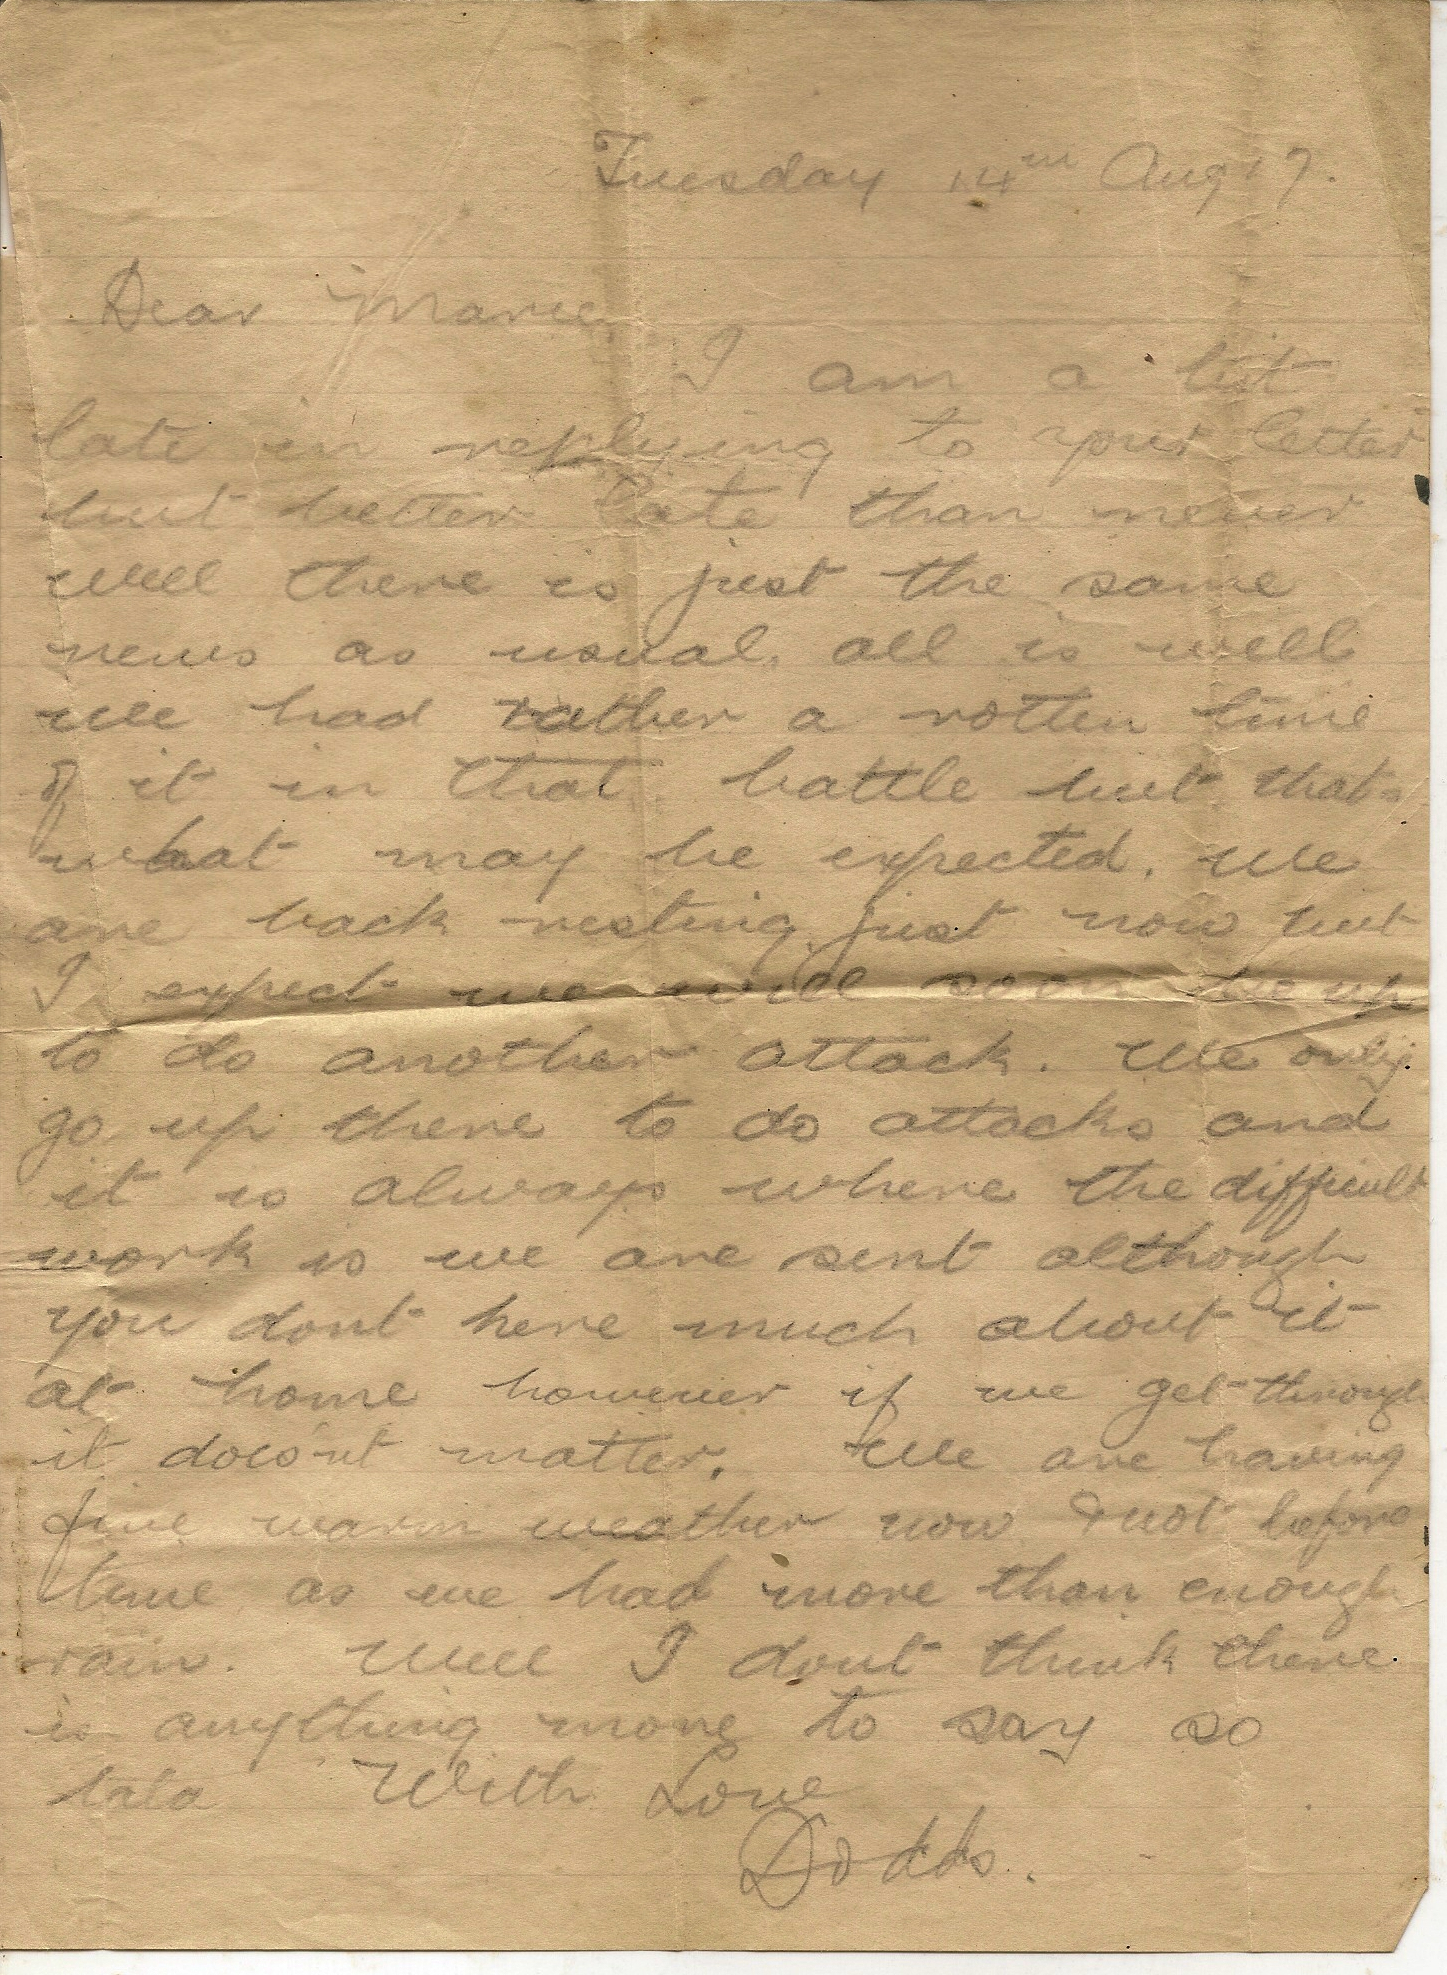 Tuesday 14th Aug 17.
Dear Marie
I am a bit
late in replying to your letter
but better late than never
well there is just the same
news as usual, all is well
We had rather a rotten time
of it in that battle but thats
what may be expected. We
are back resting just now but
I expect we will soon be up
to do another attack. We only
go up there to do attacks and
it is always where the difficult
work is we are sent although
you dont here much about it
at home however if we get through
it does'nt matter. We are having
fine warm weather now & not before
time as we had more than enough
rain. Well I dont think there
is anything more to say so
tata With Love
Dodds.